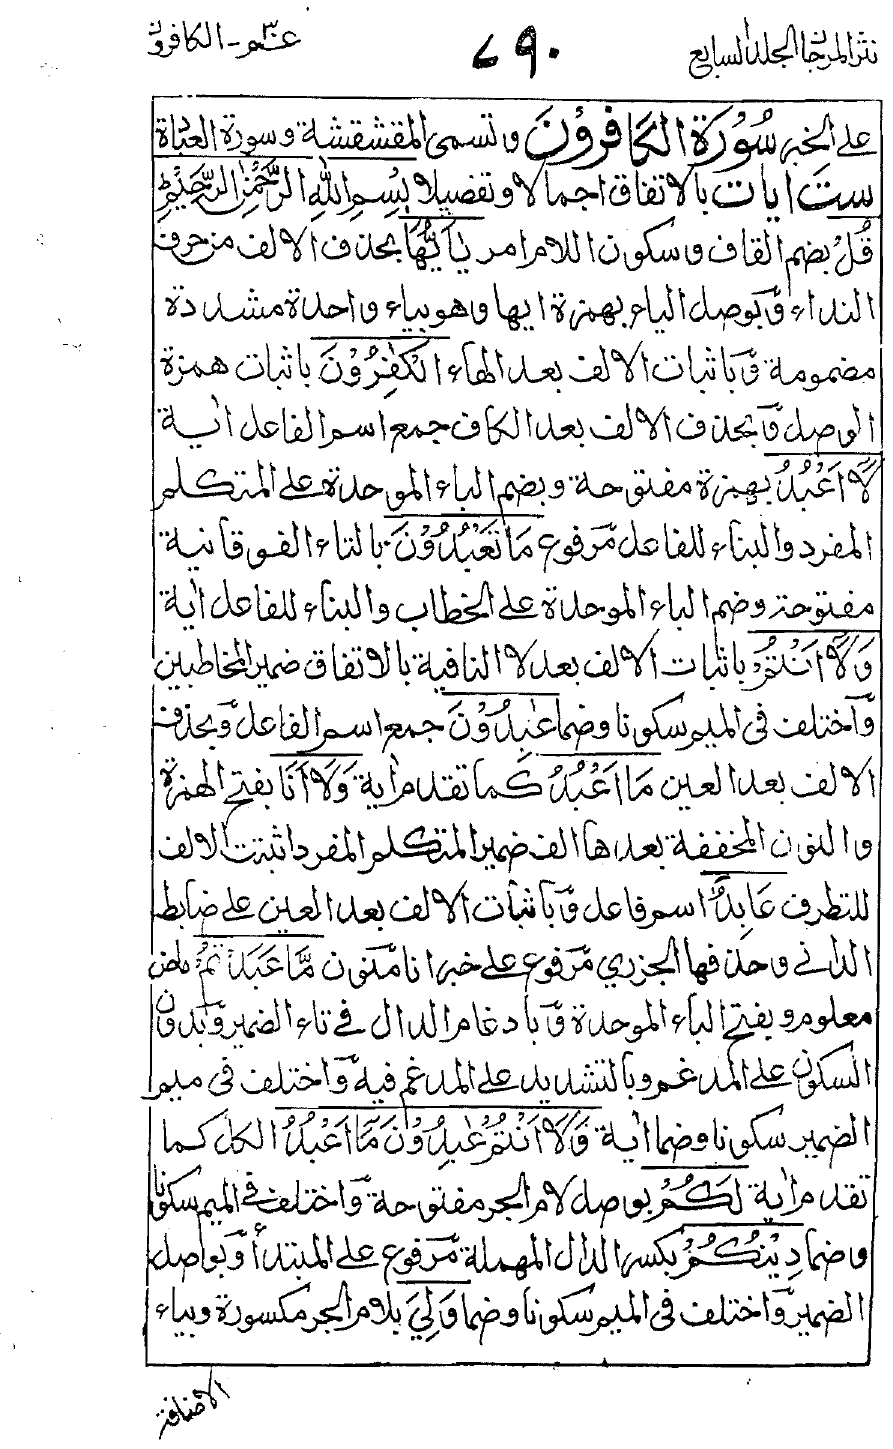 نثر المرجان المجلد السابع
٧٩٠
عم٣ - الكافرون
على الخبر سُوْرَةُ الكَافِرُوْنَ وتسمى المقشقشة وسورة العبادة
ست ايات بالاتفاق اجمالا وتفصيلا بِسْمِ اللهِ الرَّحْمٰنِ الرَّحِيْمِ
قُلْ بضم القاف وسكون اللام امر يٰاَيُّهَا بحذف الالف من حرف
النداء وبوصل الياء بهمزة ايها وهو بياء واحدة مشددة
مضمومة وباثبات الالف بعد الهاء الْكٰفِرُوْنَ باثبات همزة
الوصل وبحذف الالف بعد الكاف جمع اسم الفاعل اٰية
لَآ اَعْبُدُ بهمزة مفتوحة وبضم الباء الموحدة على المتكلم
المفرد والبناء للفاعل مرفوع مَا تَعْبُدُوْنَ بالتاء الفوقانية
مفتوحة وضم الباء الموحدة على الخطاب والبناء للفاعل اٰية
وَلَآ اَنْتُمْ باثبات الالف بعد لا النافية بالاتفاق ضمير المخاطبين
واختلف في الميم سكونا وضما عٰبِدُوْنَ جمع اسم الفاعل وبحذف
الالف بعد العين مَا اَعْبُدُ كما تقدم اٰية وَلَآ اَنَا بفتح الهمزة
والنون المخففة بعدها الف ضمير المتكلم المفرد اثبتت الالف
للتطرف عَابِدٌ اسم فاعل وباثبات الالف بعد العين على ضابط
الداني وحذفها الجزري مرفوع على خبر انا منون مَّا عَبَدْتُّمْ ماض
معلوم وبفتح الباء الموحدة وبادغام الدال في تاء الضمير وبدون
السكون على المدغم وبالتشديد على المدغم فيه واختلف في ميم
الضمير سكونا وضما اٰية وَلَآ اَنْتُمْ عٰبِدُوْنَ مَآ اَعْبُدُ الكل كما
تقدم اٰية لَكُمْ بوصل لام الجر مفتوحة واختلف في الميم سكونا
وضما دِيْنُكُمْ بكسر الدال المهملة مرفوع على المبتدأ وبوصل
الضمير واختلف في الميم سكونا وضما وَلِيَ بلام الجر مكسورة وبياء
الاضافة